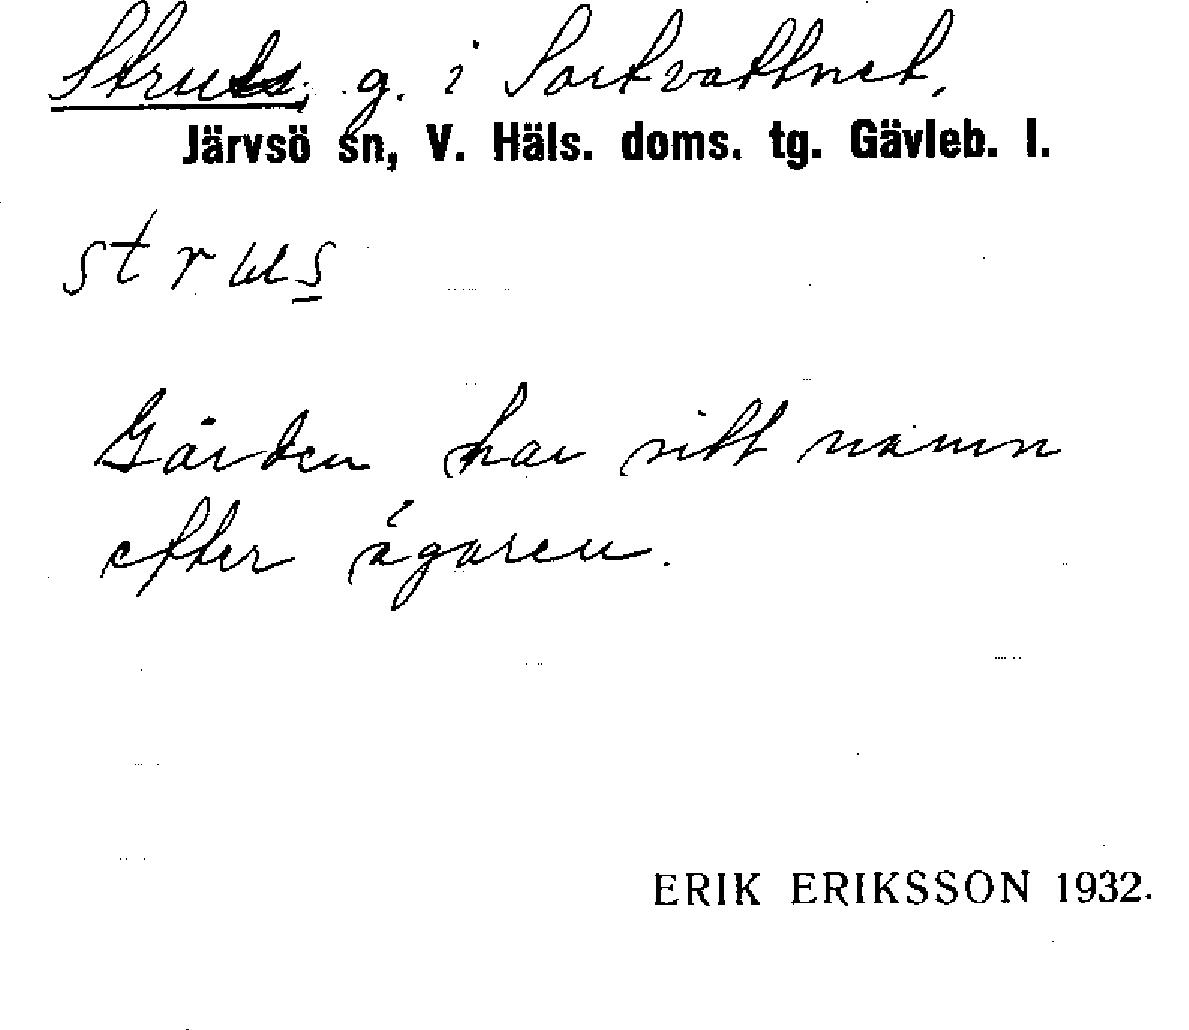 Struts, g. i Sortvattnet,
Järvsö sn, V. Häls. doms. tg. Gävleb. l.
strus
Gården har sitt namn
efter ägaren.
ERIK ERIKSSON 1932.